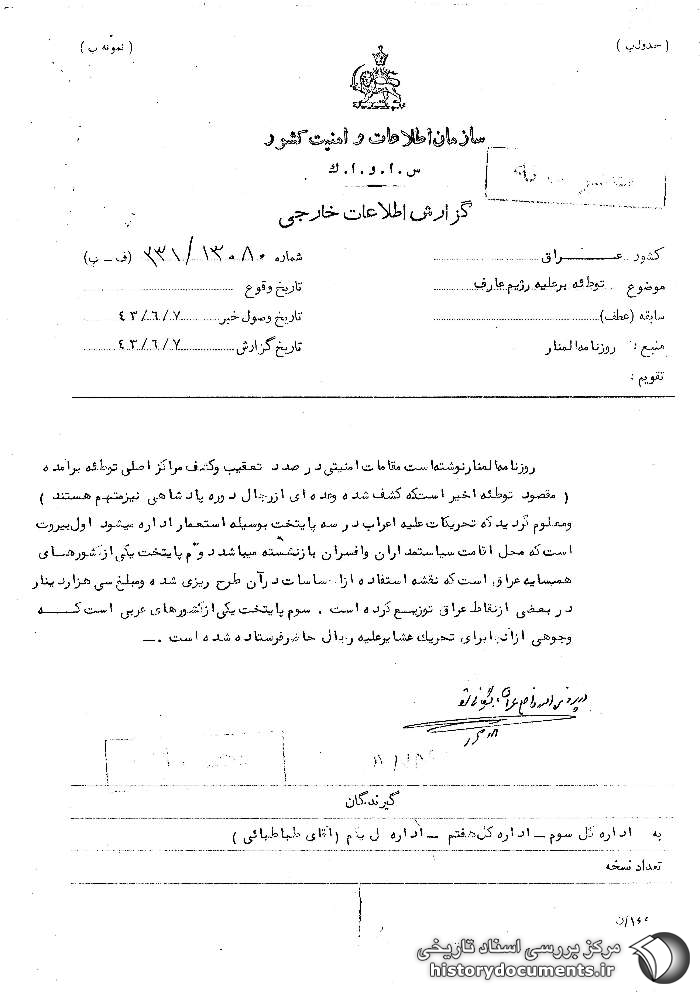 ( جدول ب )
( نمونه ب )
سازمان اطلاعات و امنیت کشور
س . ا . و . ا . ک
گزارش اطلاعات خارجی
کشور عــراق
شماره ۳۳۱/۱۳۰۸۰ (ف - ب)
موضوع توطئه بر علیه رژیم عارف
تاریخ وقوع
سابقه (عطف)
تاریخ وصول خبر ۴۳/۶/۷
منبع : روزنامه المنار
تاریخ گزارش ۴۳/۶/۷
تقویم :
روزنامه المنار نوشته است مقامات امنیتی در صدد تعقیب و کشف مراکز اصلی توطئه برآمده
( مقصود توطئه اخیر است که کشف شده و عده ای از رجال دوره پادشاهی نیز متهم هستند )
و معلوم گردید که تحریکات علیه اعراب در سه پایتخت بوسیله استعمار اداره میشود اول بیروت
است که محل اقامت سیاستمداران و افسران بازنشسته میباشد دوم پایتخت یکی از کشورهـای
همسایه عراق است که نقشه استفاده از ساسات در آن طرح ریزی شده و مبلغ سی هزار دینار
در بعضی از نقاط عراق توزیع کرده است . سوم پایتخت یکی از کشورهای عربی است کــه
وجوهی از آنجا برای تحریک عشایر علیه رژیم حاضر فرستاده شده است . ــ
گیرندگان
به اداره کل سوم - اداره کل هفتم - اداره یکم (آقای طباطبائی )
تعداد نسخه
مرکز بررسی اسناد تاریخی
historydocuments.ir